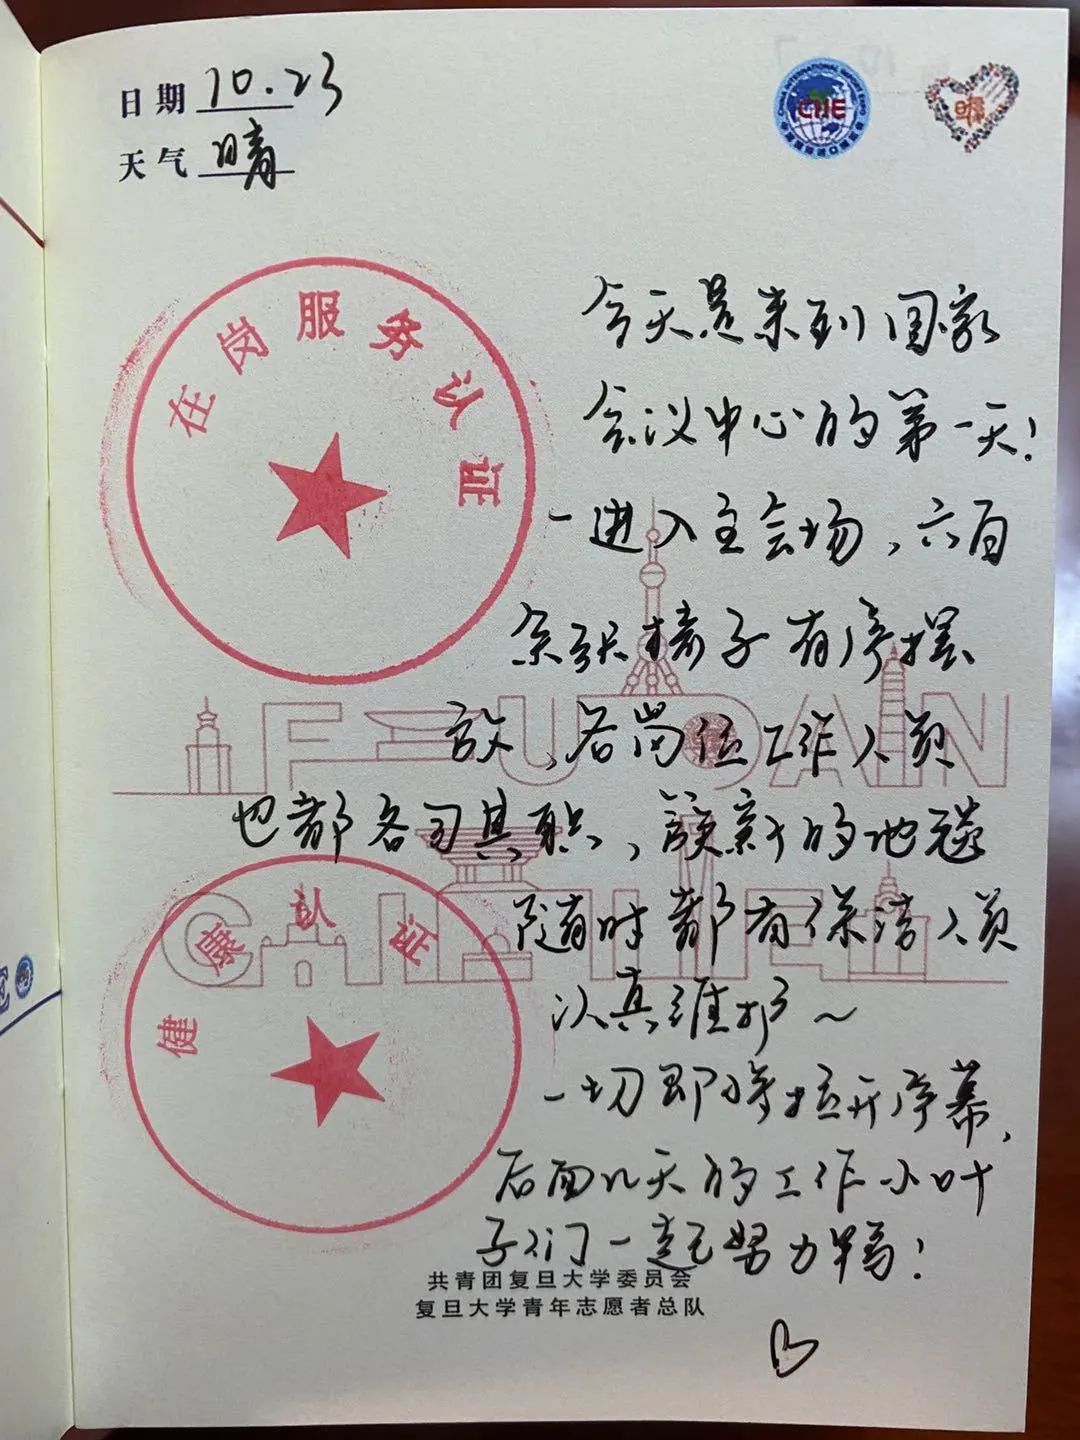 日期 10.23
天气 晴
CHINA INTERNATIONAL IMPORT EXPO
CIIE
中国国际进口博览会
在岗服务认证
今天是来到国家
会议中心的第一天！
一进入主会场，六百
余张椅子有序摆
放，各岗位工作人员
也都各司其职，簇新的地毯
随时都有保洁人员
认真维护～
一切即将拉开序幕，
后面几天的工作小叶
子们一起努力鸭！
FUDAN
CIIE
健康认证
共青团复旦大学委员会
复旦大学青年志愿者总队